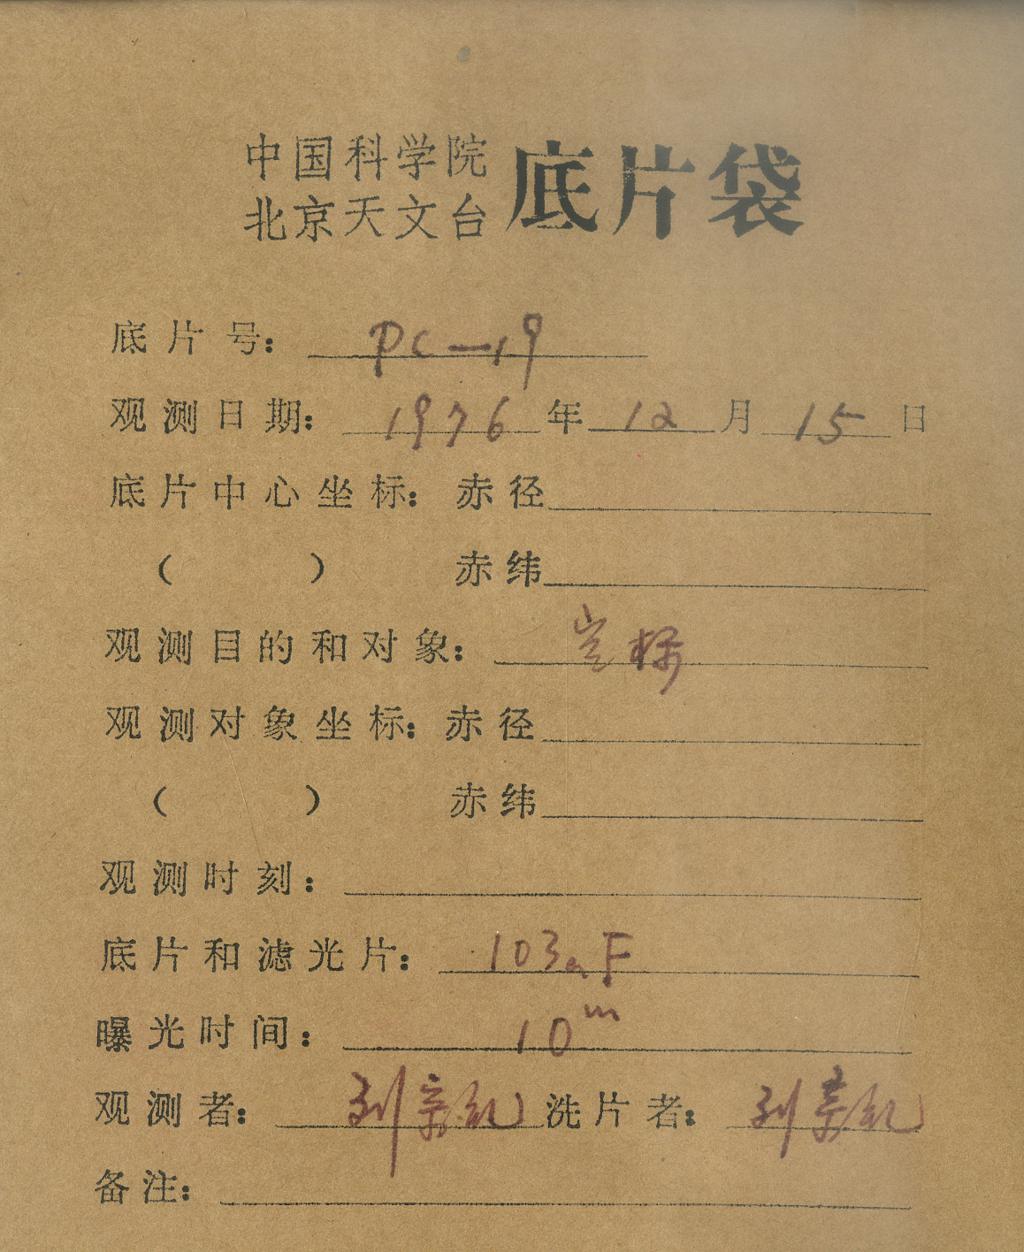 中国科学院
北京天文台 底片袋
底片号: PC—19
观测日期: 1976年12月15日
底片中心坐标: 赤径
( ) 赤纬
观测目的和对象:
观测对象坐标: 赤径
( ) 赤纬
观测时刻:
底片和滤光片: 103aF
曝光时间: 10m
观测者: 刘 洗片者: 刘
备注: